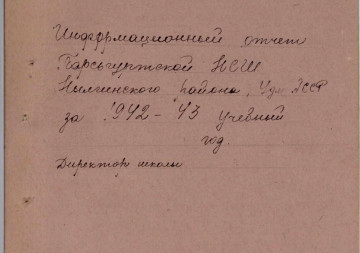 Информационный отчет
Барсыгуртской НСШ
Нылгинского района, Удм АССР
за 1942-43 учебный
год.
Директор школы